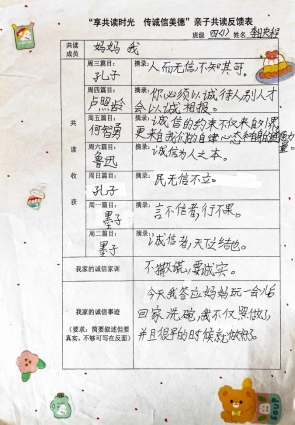 “享共读时光 传诚信美德”亲子共读反馈表
班级 四(1) 姓名
共读成员 妈妈 我
共读收获
周三篇目: 孔子 摘录: 人而无信,不知其可。
周四篇目: 卢照龄 摘录: 你必须以诚待人,别人才
会以诚相报。
周五篇目: 何智勇 摘录: 诚信的约束不仅来自外界,
更来自我们的自律心态和自身的道德力
量
周六篇目: 鲁迅 摘录: 诚信为人之本。
周日篇目: 孔子 摘录: 民无信不立。
周一篇目: 墨子 摘录: 言不信者,行不果。
周二篇目: 墨子 摘录: 诚信者,天下结也。
我家的诚信家训 不撒谎,要诚实。
我家的诚信事迹
(要求:简要叙述但要
真实,不够可写在反面)
今天我答应妈妈玩一会后
回家洗碗,我不仅做了
并且很早的时候就做好。
SOUP